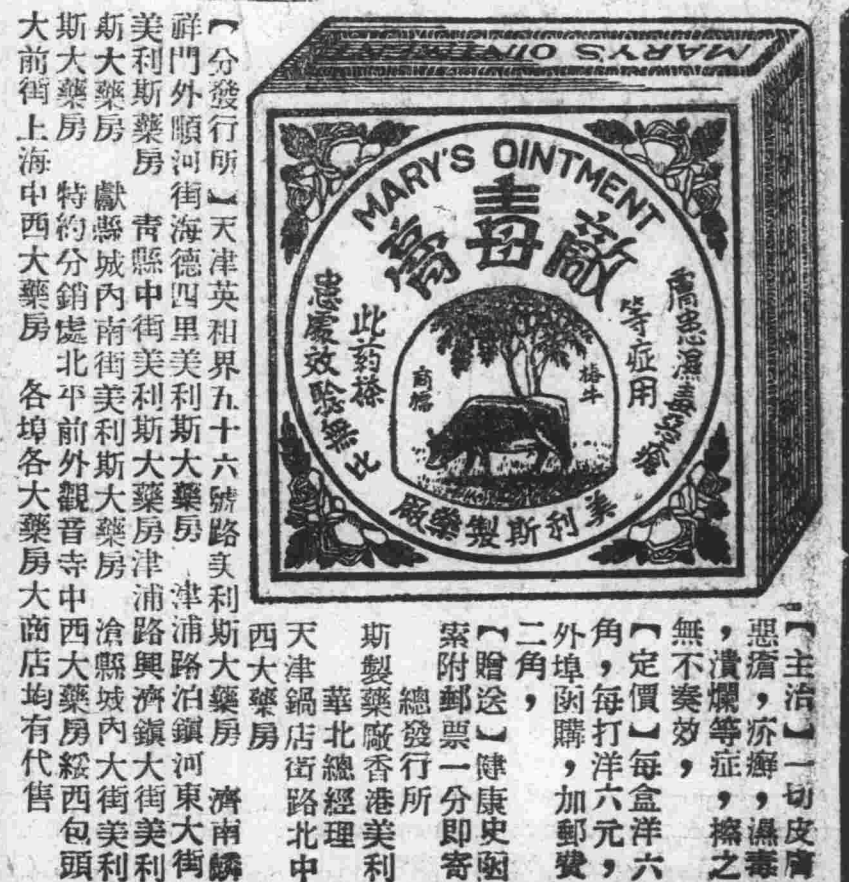 MARY'S OINTMENT
MARY'S OINTMENT
敵毒膏
膚患濕毒惡瘡
等症用
此药搽
患處效驗無比
樁牛
商標
美利斯製藥厰
【主治】一切皮膚
惡瘡，疥癬，濕毒
，潰爛等症，擦之
無不奏效，
【定價】每盒洋六
角，每打洋六元，
外埠函購，加郵費
二角，
【贈送】健康史函
索附郵票一分即寄
總發行所
斯製藥廠香港美利
華北總經理
天津鍋店街路北中
西大藥房
【分發行所】天津英租界五十六號路美利斯大藥房　濟南麟
祥門外順河街海德四里美利斯大藥房　津浦路泊鎮河東大街
美利斯藥房　青縣中街美利斯大藥房津浦路興濟鎮大街美利
斯大藥房　獻縣城內南街美利斯大藥房　滄縣城內大街美利
斯大藥房　特約分銷處北平前外觀音寺中西大藥房綏西包頭
大前街上海中西大藥房　各埠各大藥房大商店均有代售